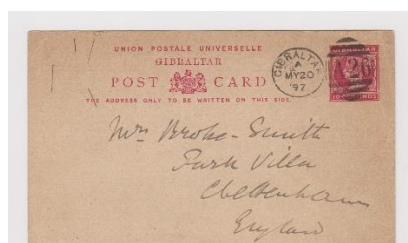 UNION POSTALE UNIVERSELLE
GIBRALTAR
POST CARD
THE ADDRESS ONLY TO BE WRITTEN ON THIS SIDE.
GIBRALTAR
A
MY20
97
GIBRALTAR
A26
Mrs Broke-Smith
Park Villa
Cheltenham
England